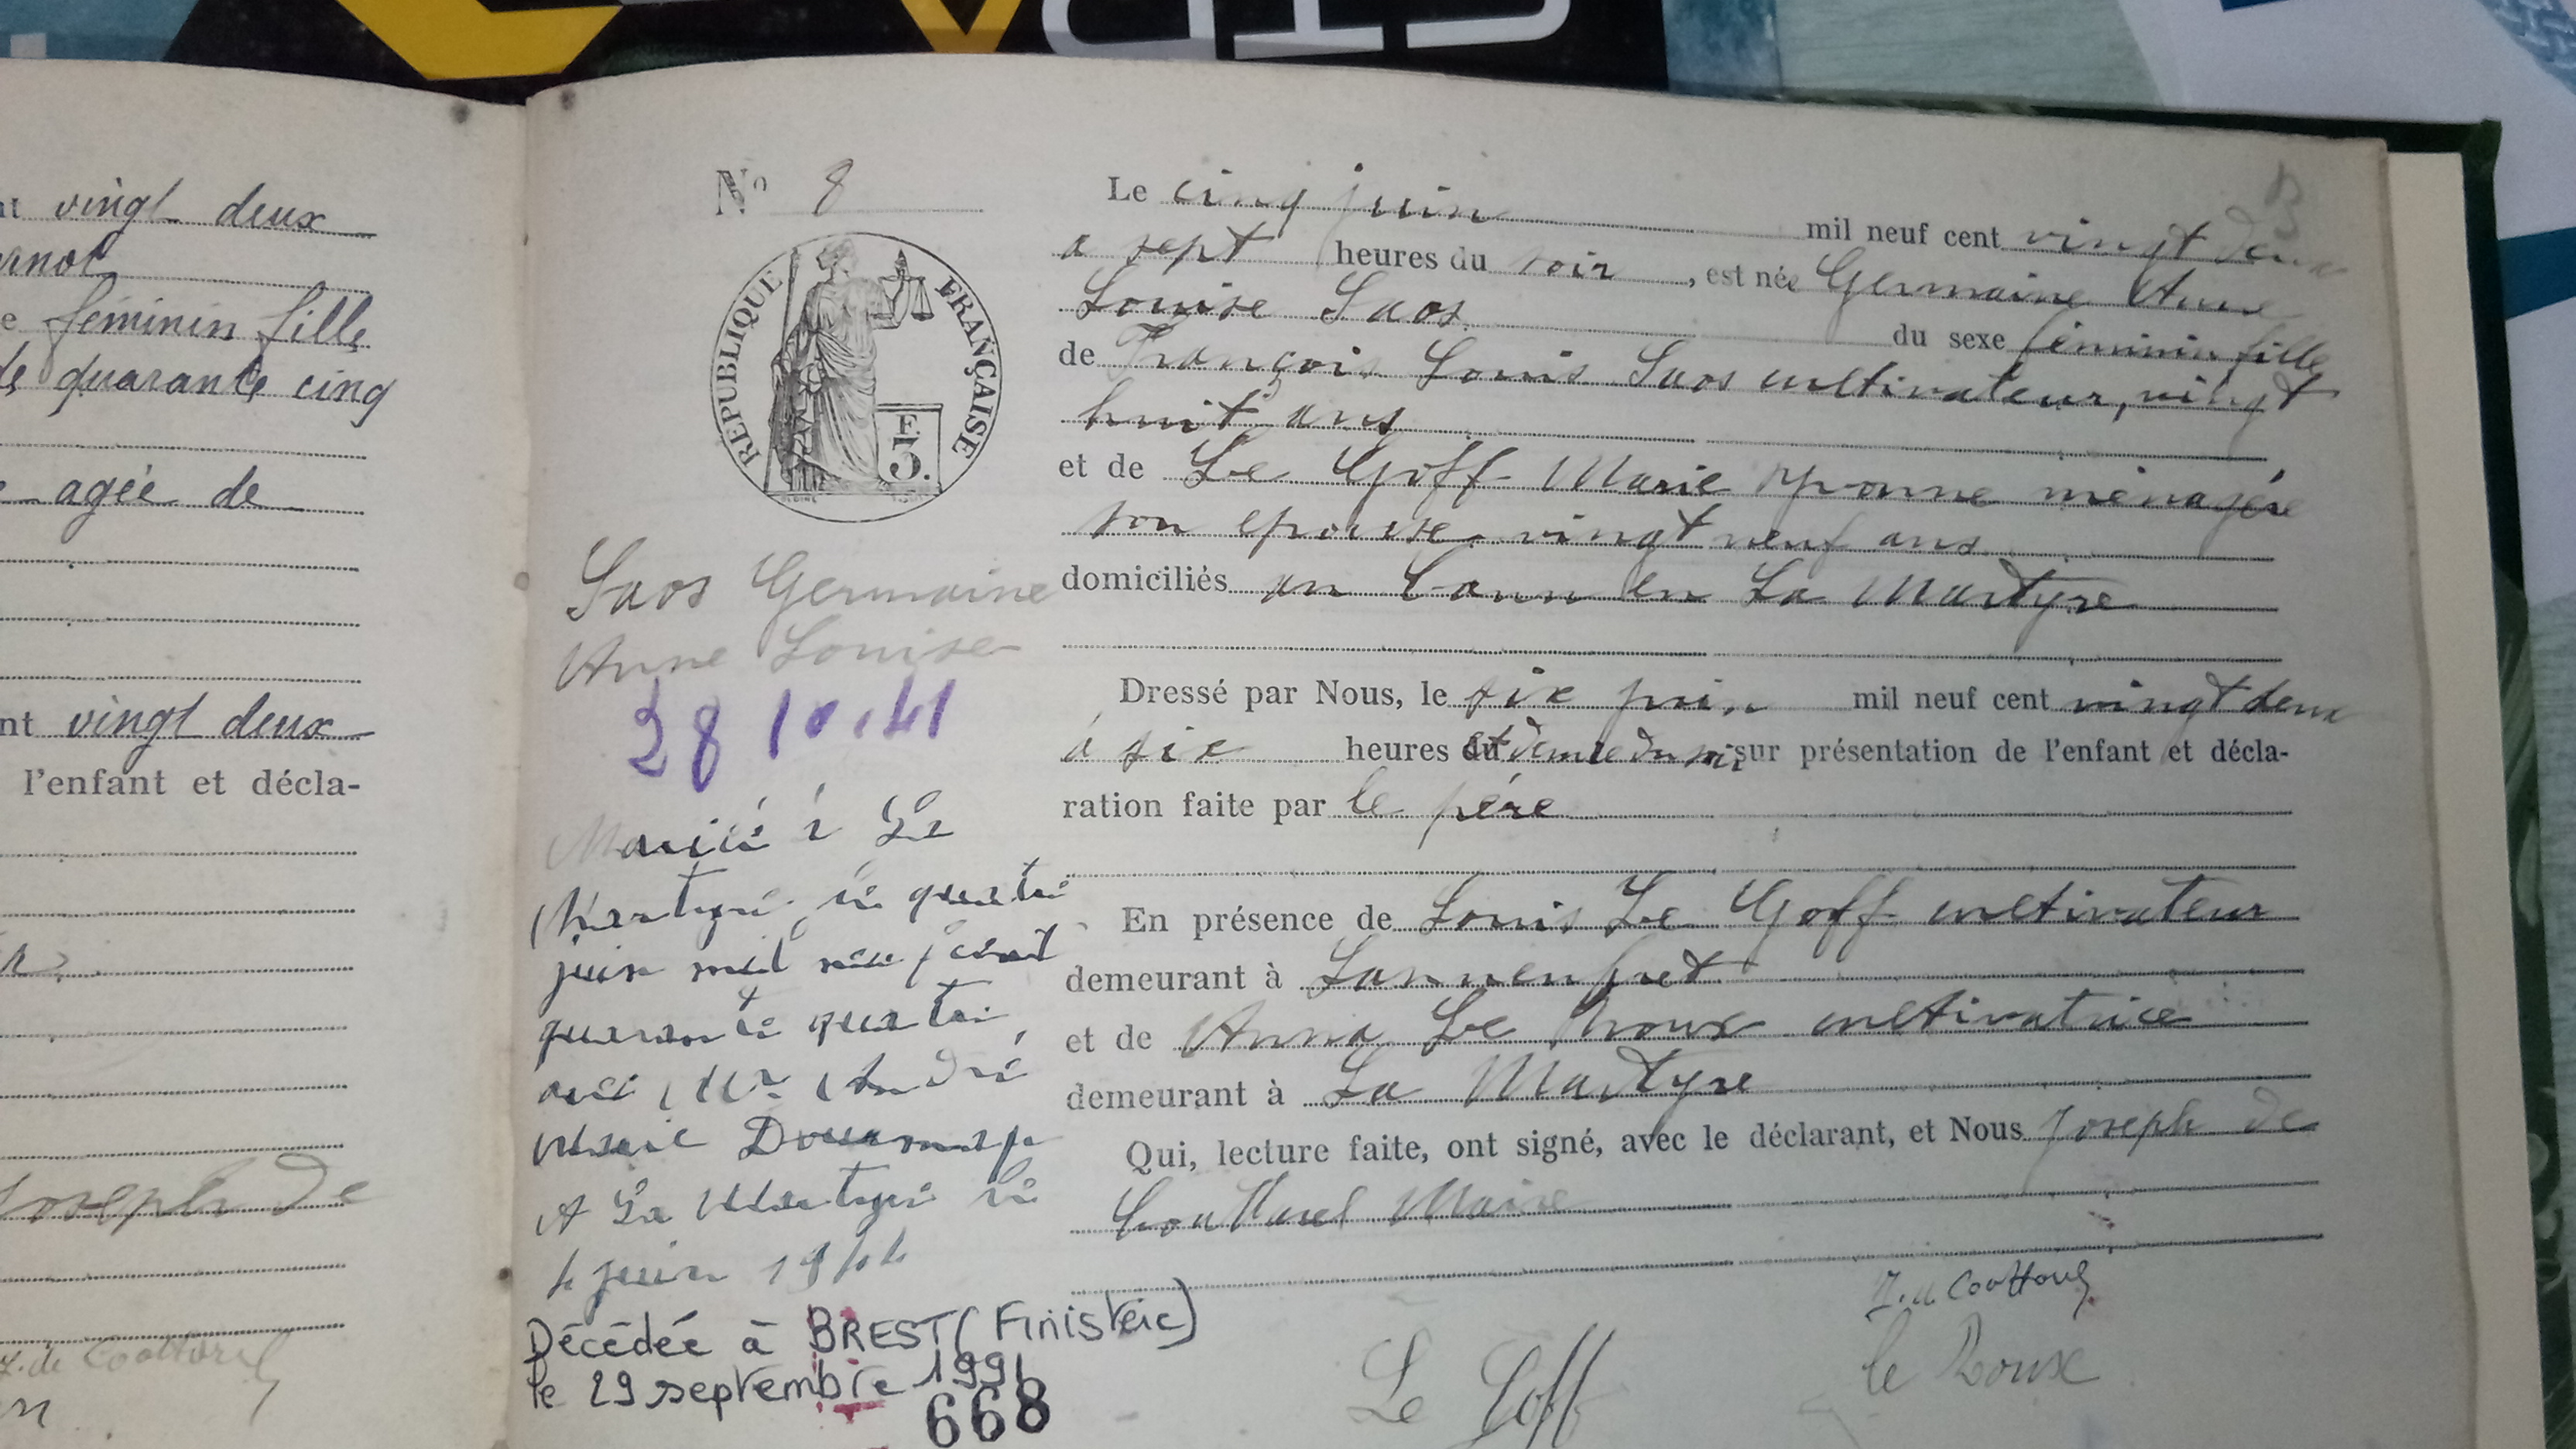 vingt deux
féminin fille
quarante cinq
agée de
nt vingt deux
l'enfant et décla-
Joseph de
J. de Coattarel
N° 8
REPUBLIQUE FRANÇAISE
F.
3.
Saos Germaine
Anne Louise
28 10.41
Mariée à La
Martyre le quatre
juin mil neuf cent
quarante quatre
avec Mr André
Marie
A La Martyre le
4 juin 1944
Décédée à BREST (Finistère)
le 29 septembre 1991
668
Le cinq juin mil neuf cent vingt deux
a sept heures du soir, est née Germaine Anne
Louise Saos du sexe féminin fille
de François Louis Saos cultivateur, vingt
huit ans
et de Le Goff Marie Yvonne ménagère
son epouse vingt neuf ans
domiciliés au en La Martyre
Dressé par Nous, le six juin mil neuf cent vingt deux
à six heures et demie du soir sur présentation de l'enfant et décla-
ration faite par le père
En présence de Louis Le Goff cultivateur
demeurant à Lanneufret
et de Anna Le Roux cultivatrice
demeurant à La Martyre
Qui, lecture faite, ont signé, avec le déclarant, et Nous Joseph de
Coattarel Maire
J. de Coattarel
Le Goff
le Roux